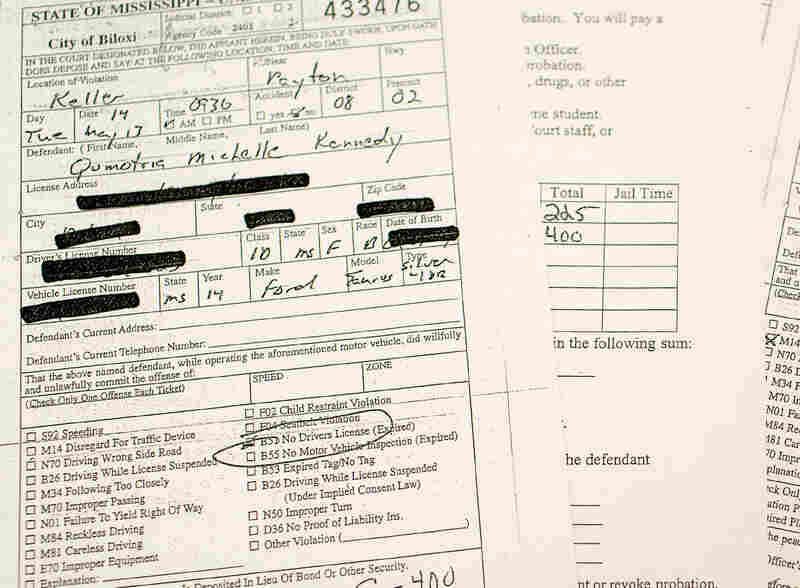 STATE OF MISSISSIPPI
433476
Judicial District ☐ 1 ☐ 2
City of Biloxi
Agency Code 2401
IN THE COURT DESIGNATED BELOW, THE AFFIANT HEREIN, BEING DULY SWORN, UPON OATH
DOES DEPOSE AND SAY AT THE FOLLOWING LOCATION, TIME AND DATE:
Location of Violation
At/Near
Hwy
Keller
Payton
Day
Date 14
Time 0930
Accident
District
Precinct
Tue
May 13
AM ☐ PM
☐ yes no
08
02
Defendant: (First Name, Middle Name, Last Name)
Qumotria Michelle Kennedy
License Address
City
State
Zip Code
Driver's License Number
Class
State
Sex
Race
Date of Birth
10
ms
F
B
Vehicle License Number
State
Year
Make
Model
Type
ms
14
Ford
Taurus
Silver
4 DR
Defendant's Current Address:
Defendant's Current Telephone Number:
That the above named defendant, while operating the aforementioned motor vehicle, did willfully
and unlawfully commit the offense of:
(Check Only One Offense Each Ticket)
SPEED
ZONE
☐ S92 Speeding
☐ M14 Disregard For Traffic Device
☐ N70 Driving Wrong Side Road
☐ B26 Driving While License Suspended
☐ M34 Following Too Closely
☐ M70 Improper Passing
☐ N01 Failure To Yield Right Of Way
☐ M84 Reckless Driving
☐ M81 Careless Driving
☐ E70 Improper Equipment
Explanation:
☐ F02 Child Restraint Violation
☐ F04 Seatbelt Violation
B51 No Drivers License (Expired)
☐ B55 No Motor Vehicle Inspection (Expired)
☐ B53 Expired Tag/No Tag
☐ B26 Driving While License Suspended
(Under Implied Consent Law)
☐ N50 Improper Turn
☐ D36 No Proof of Liability Ins.
☐ Other Violation ( )
Is Deposited In Lieu Of Bond Or Other Security.
400
bation. You will pay a
Officer.
robation.
, drugs, or other
me student.
ourt staff, or
Total
Jail Time
225
400
in the following sum:
he defendant
nt or revoke probation.
That
and u
(Check
☐ S92
M14
☐ N70
☐ B26 D
☐ M34 F
☐ M70 Im
☐ N01 Fa
☐ M84 Rec
☐ M81 Care